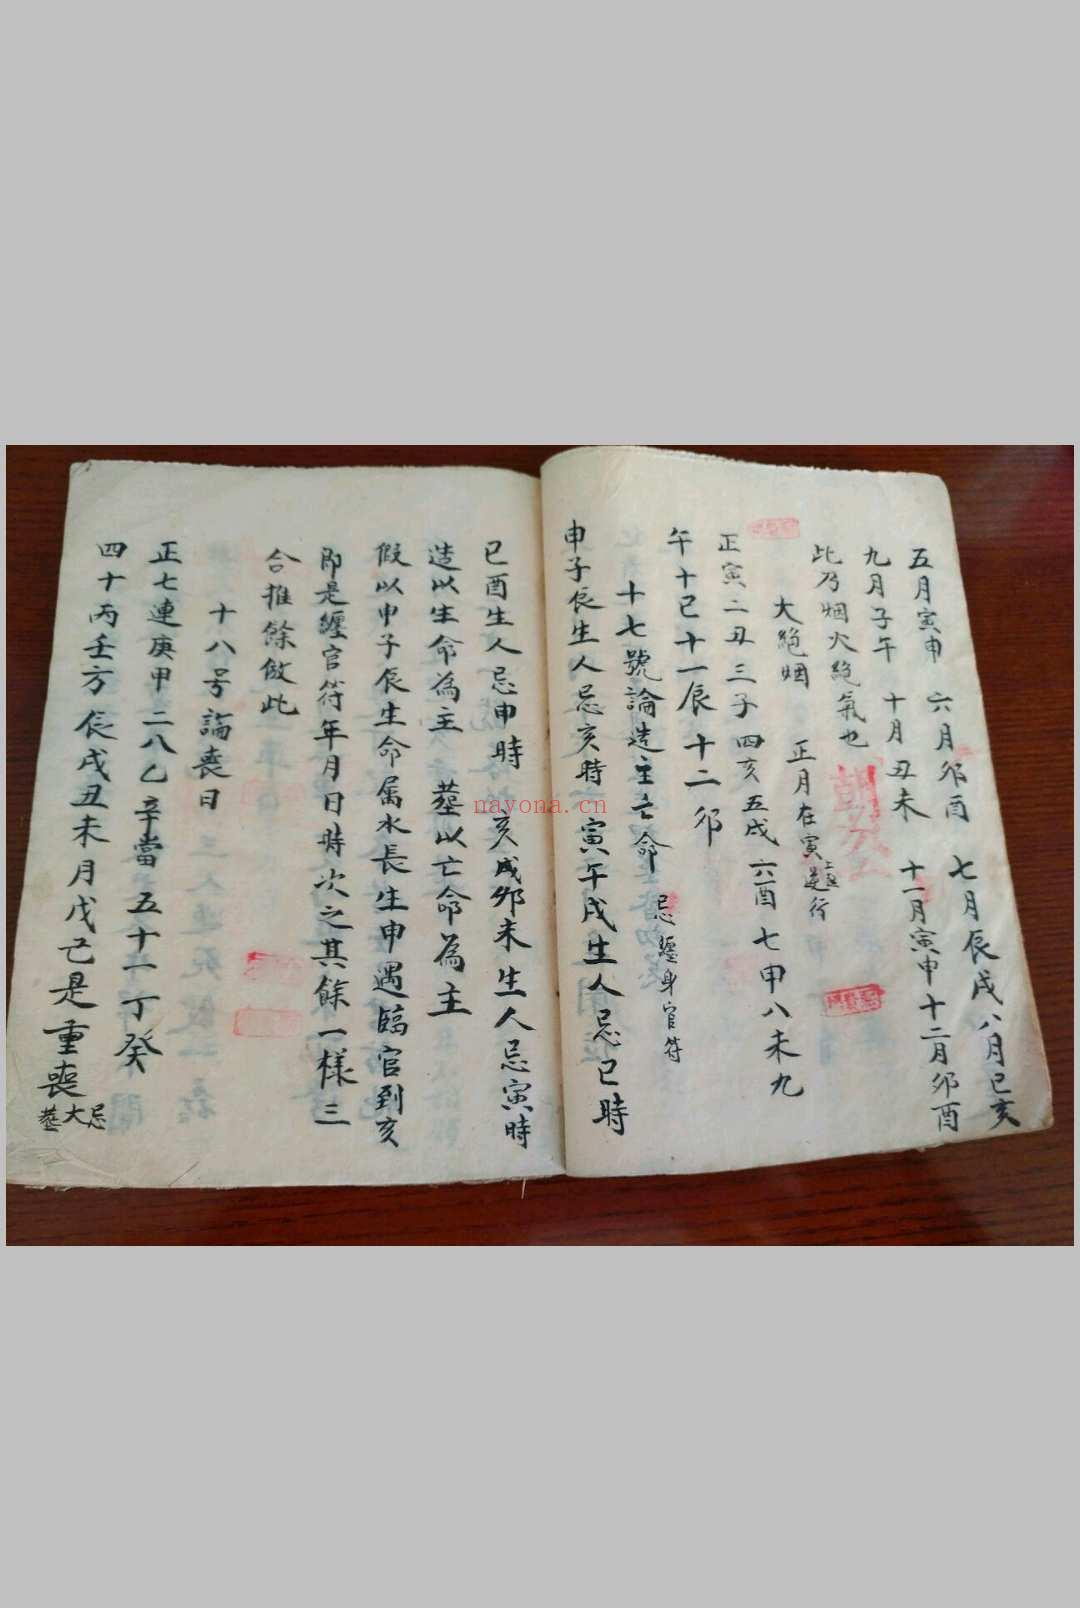 五月寅申 六月卯酉 七月辰戌 八月巳亥
九月子午 十月丑未 十一月寅申 十二月卯酉
此乃烟火絕氣也
大絕烟 正月在寅上逆行
正寅二丑三子四亥五戌六酉七申八未九
午十巳十一辰十二卯
十七號論造主亡命 忌纏身官符
申子辰生人忌亥時 寅午戌生人忌巳時
巳酉生人忌申時 亥戌卯未生人忌寅時
造以生命為主 塟以亡命為主
假以申子辰生命属水長生申遇臨官到亥
即是纏官符年月日時次之其餘一樣三
合推餘倣此
十八号論喪日
正七連庚甲二八乙辛當五十一丁癸
四十丙壬方辰戌丑未月戊己是重喪
忌大塟
nayona.cn